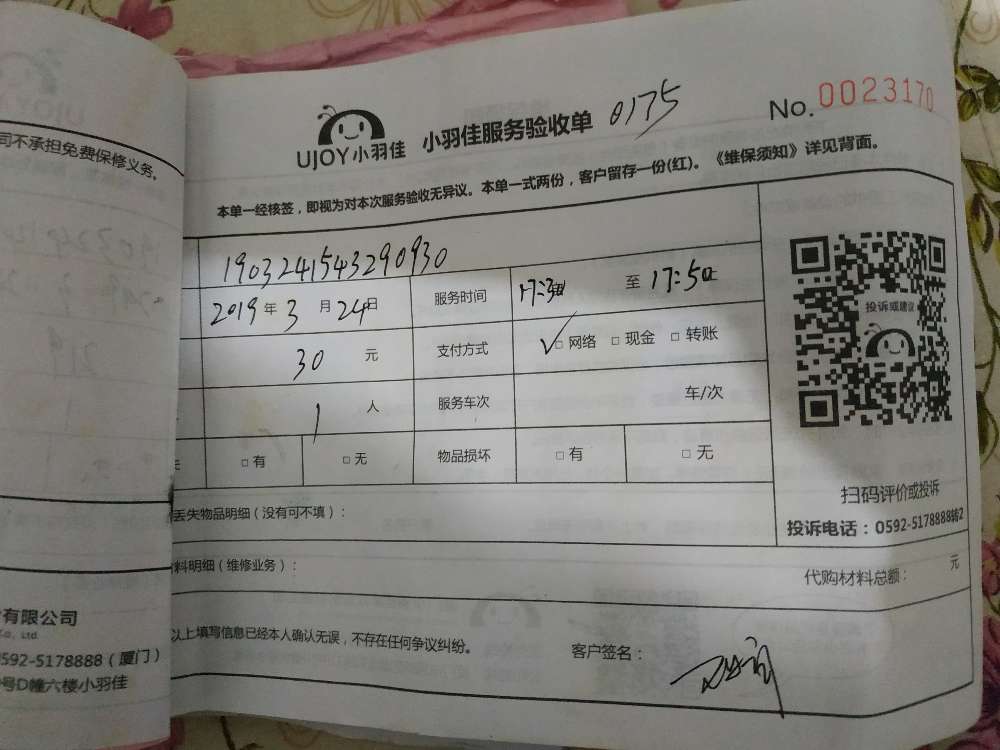 司不承担免费保修义务。
有限公司
Co., Ltd.
0592-5178888（厦门）
号D幢六楼小羽佳
UJOY小羽佳 小羽佳服务验收单 0175 No. 0023170
本单一经核签，即视为对本次服务验收无异议。本单一式两份，客户留存一份(红)。《维保须知》详见背面。
1903241543290930
2019年3月24日 服务时间 17:30 至 17:50
30 元 支付方式 ✓□网络 □现金 □转账
1 人 服务车次 车/次
□有 □无 物品损坏 □有 □无
投诉或建议
扫码评价或投诉
投诉电话：0592-5178888转2
丢失物品明细（没有可不填）：
料明细（维修业务）： 代购材料总额： 元
以上填写信息已经本人确认无误，不存在任何争议纠纷。 客户签名：